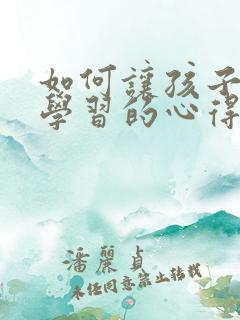 如何讓孩子
學習的心得
潘麗貞
未經同意禁止轉載